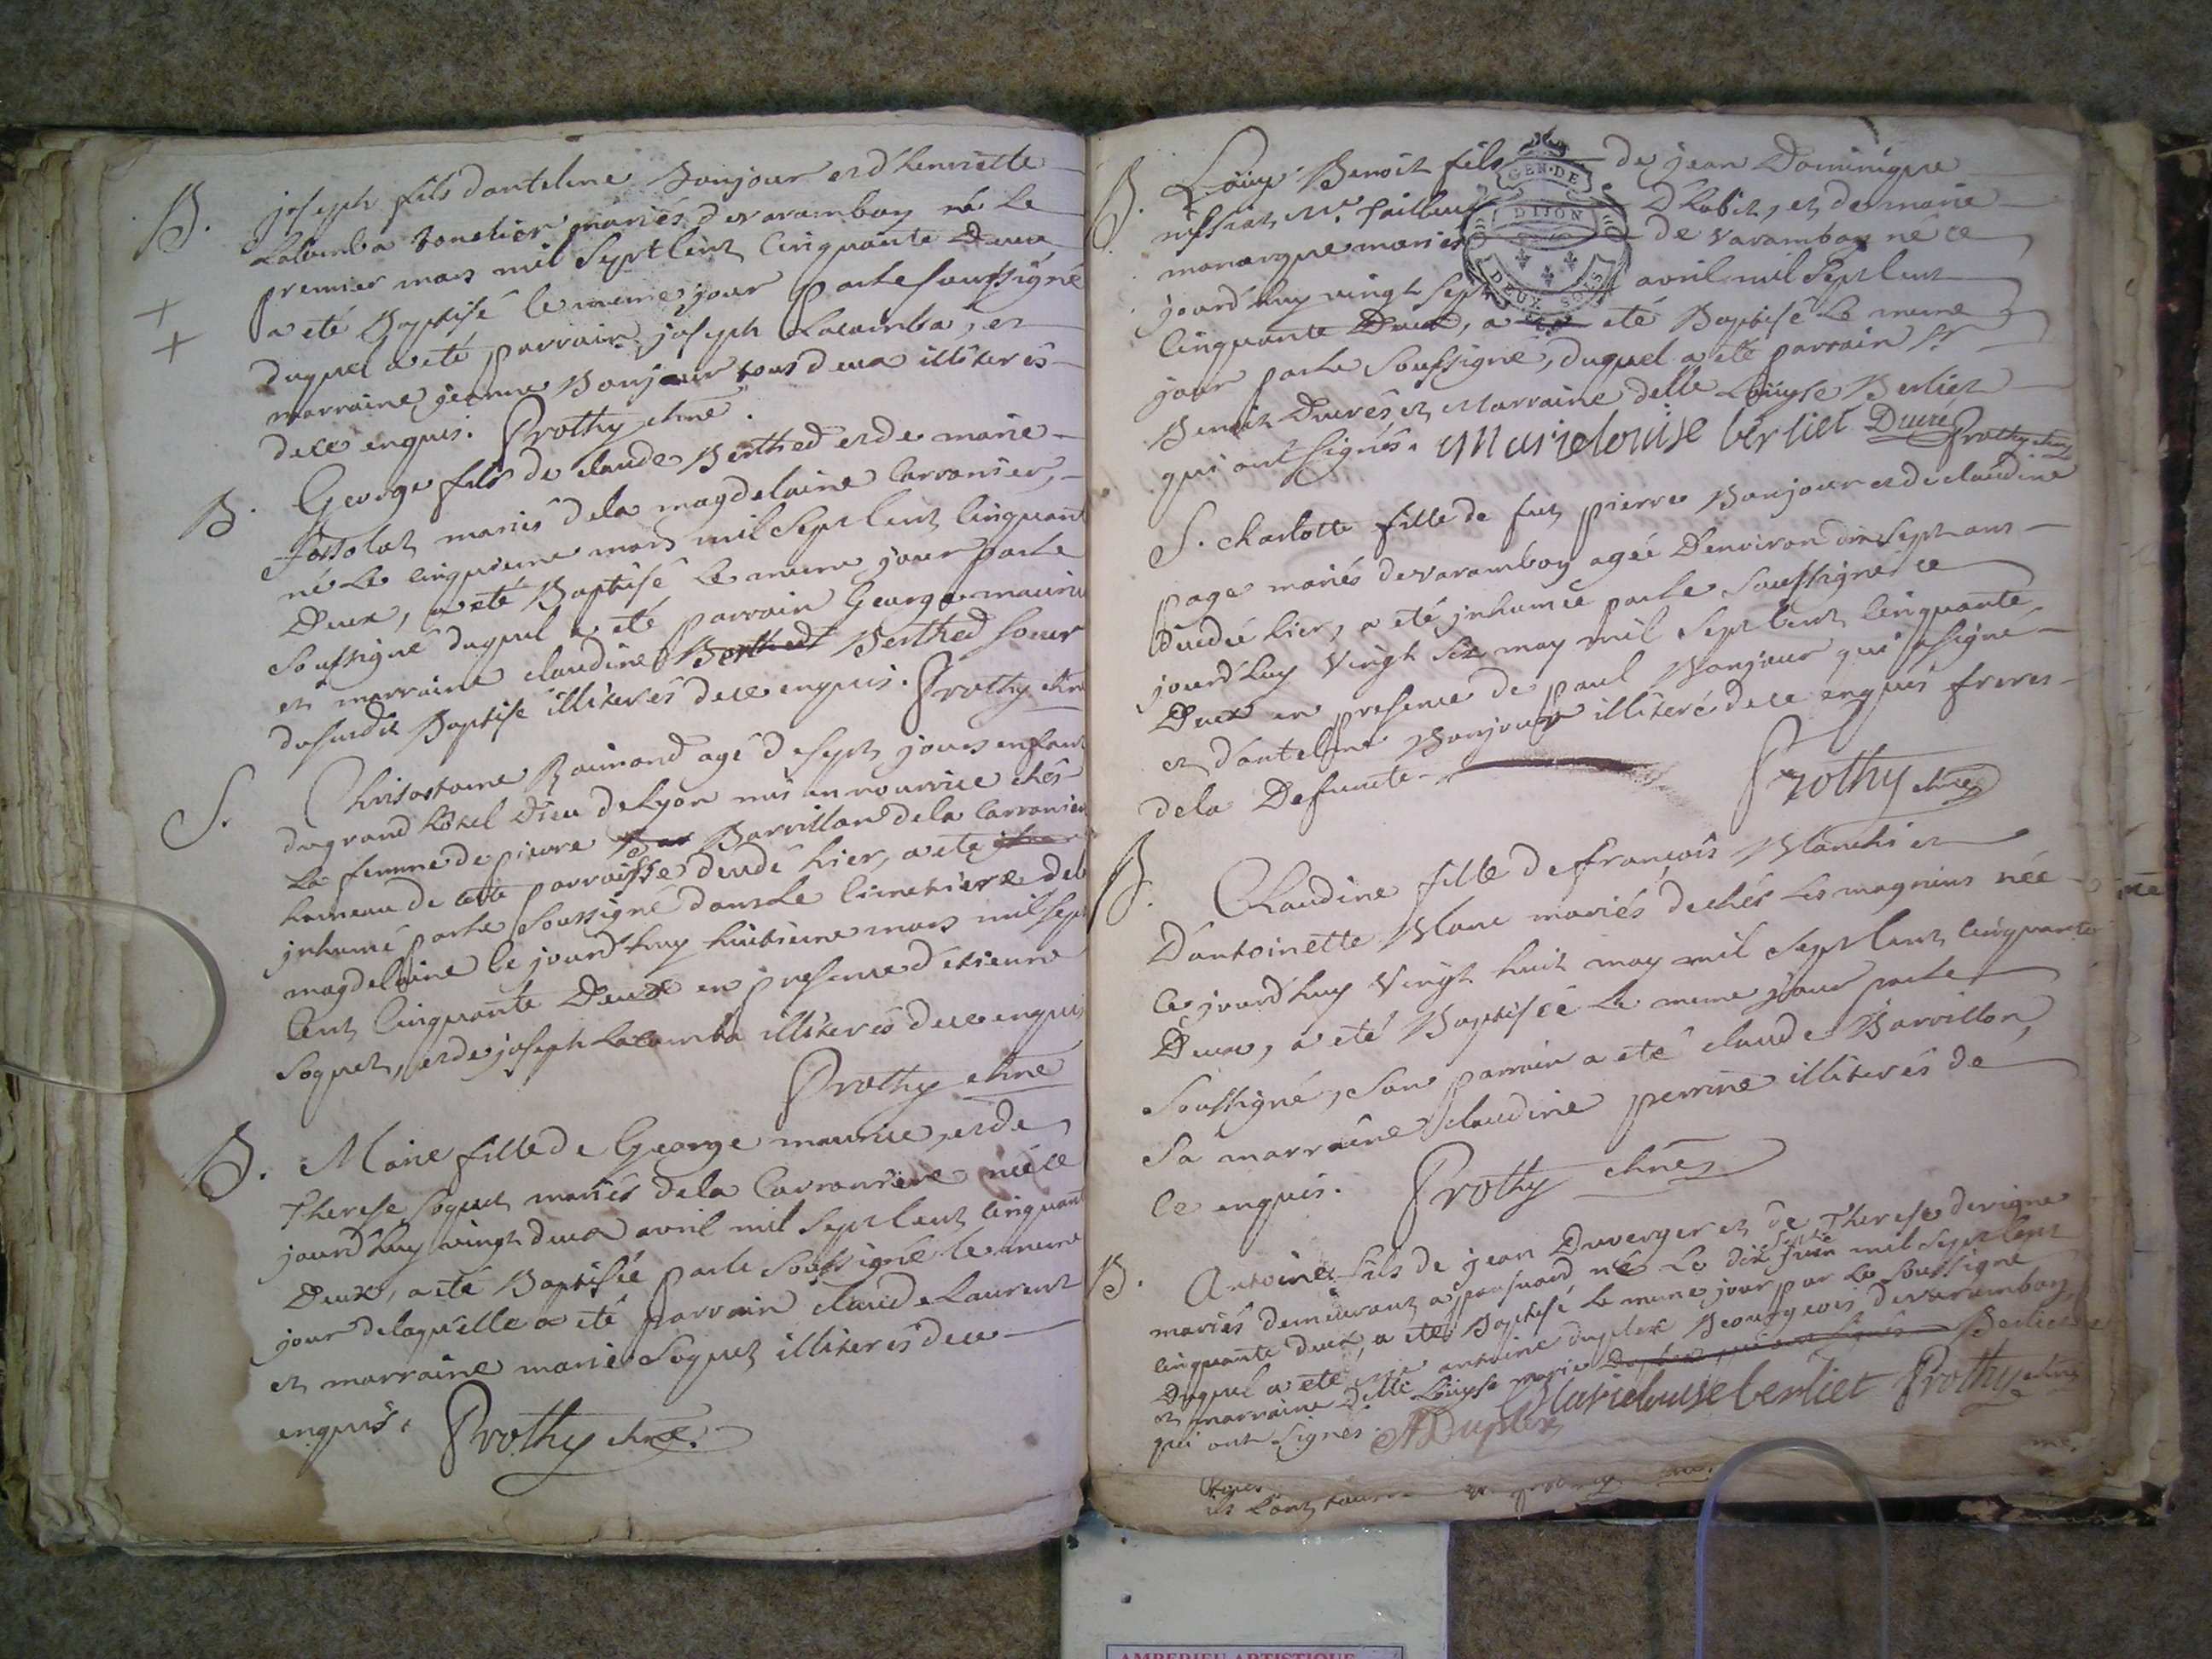 B. joseph fils dantelme Bonjour et d'henriette
Lacomba tonelier mariés de varambon né le
premier mars mil sept cent cinquante Deux
a eté Baptisé le meme jour par le soussigné
duquel a eté parrain joseph Lacomba, et
marraine jeanne Bonjour tous deux illiterés
de ce enquis. Prothy chne.
B. George fils de claude Berthed et de marie
mariés dela magdelaine Carronier,
né le cinquieme mars mil sept cent cinquant
Deux, a eté Baptisé le meme jour par le
soussigné duquel a eté parrain George maurice
et marraine claudine Berthed Berthed soeur
du susdit Baptisé illiterés de ce enquis. Prothy chne
S. Chrisostome Raimond agé de sept jours enfant
du grand hôtel Dieu de Lyon mis en nourrice chés
la femme de pierre Bar Barvillon dela Carronier
hameau de cette parroisse decedé hier, a ete
inhumé par le soussigné dans le cimetiere dela
magdelaine ce jourd'huy huitieme mars mil sept
cent cinquante Deux en presence d'etienne
Soquet, et de joseph Lacomba illiterés de ce enquis
Prothy chne
B. Marie fille de George maurice, et de
Therese Soquet mariés dela Carroniere née ce
jourd'huy vingt deux avril mil sept cent cinquant
Deux, a eté Baptisée par le soussigné le meme
jour de laquelle a eté parrain claude Laurent
et marraine marie Soquet illiterés de ce
enquis. Prothy chne.
B. Loüys Benoit fils de jean Dominique
Me. Tailleur D'habit, et de marie
monarque mariés de varambon né ce
GEN. DE DIJON
DEUX SOLS
jourd'huy vingt sept avril mil sept cent
cinquante Deux, a eté Baptisé le meme
jour par le soussigné, duquel a eté parrain sr
Benoit Ducrés et marraine delle Loüyse Berliet
qui ont signés. Marie louise berliet Ducre Prothy chne
S. charlotte fille de fut pierre Bonjour et de claudine
page mariés de varambon agée D'environ dix sept ans
decedée hier, a eté inhumée par le soussigné ce
jourd'huy vingt six may mil sept cent cinquante
Deux en presence de paul Bonjour qui a signé
et d'antelme Bonjour illiteré de ce enquis freres
dela Defunte.
Prothy chne
B. Claudine fille de françois Blanchi et
D'antoinette Blanc mariés de chés les magnins née
ce jourd'huy vingt huit may mil sept cent cinquante
Deux, a eté Baptisée le meme jour par le
soussigné, son parrain a eté claude Barvillon,
sa marraine claudine perrine illiterés de
ce enquis. Prothy chne
B. Antoine fils de jean Duverger et de Therese
mariés demeurant a né le dix juin mil sept cent
cinquante deux, a eté Baptisé le meme jour par le soussigné
Duquel a eté antoine duplex Bourgeois de varambon,
et marraine delle Loüyse marie Duplex qui ont signés Berliet
qui ont signés. A Duplex Marie louise berliet Prothy chne